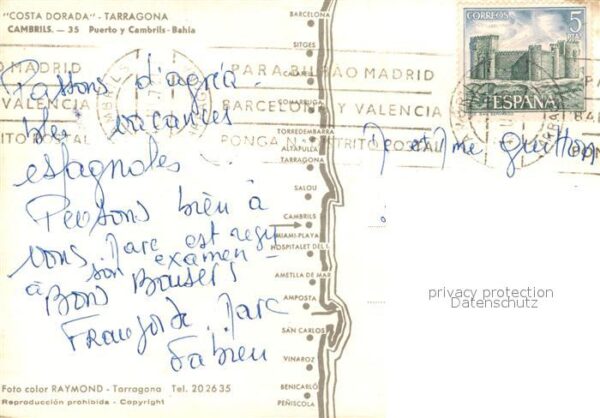 "COSTA DORADA" - TARRAGONA
CAMBRILS. — 35 Puerto y Cambrils - Bahia
Passons d'agréa-
bles vacances
espagnoles
Pensons bien à
vous. Marc est reçu
à son examen -
Bons Baisers
Françoise. Marc
Fabien
Foto color RAYMOND - Tarragona Tel. 202635
Reproducción prohibida - Copyright
BARCELONA
SITGES
CALAFELL
COMARRUGA
TORREDEMBARRA
ALTAFULLA
TARRAGONA
SALOU
CAMBRILS
MIAMI-PLAYA
HOSPITALET DEL I.
AMETLLA DE MAR
AMPOSTA
SAN CARLOS
VINAROZ
BENICARLÓ
PEÑISCOLA
PARA BILBAO MADRID
BARCELONA Y VALENCIA
PONGA N.º DISTRITO POSTAL
CORREOS
5
PTAS
ESPAÑA
M et Mme Guitton
privacy protection
Datenschutz